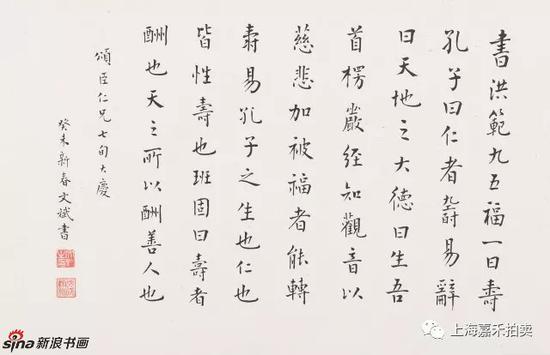 書洪範九五福一曰壽
孔子曰仁者壽易辭
曰天地之大德曰生吾
首楞嚴經知觀音以
慈悲加被福者能轉
壽易孔子之生也仁也
皆性壽也班固曰壽者
酬也天之所以酬善人也
頌臣仁兄七旬大慶
癸未新春文斌書
sina新浪书画
上海嘉禾拍卖